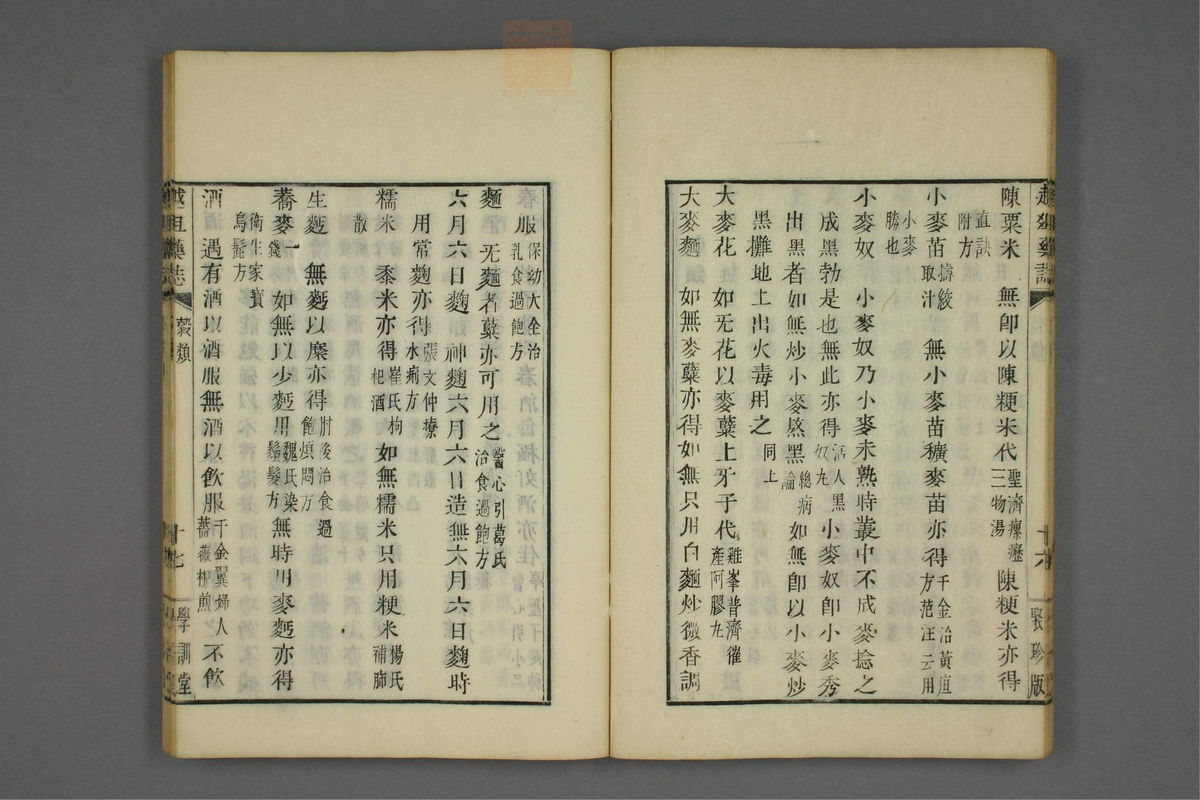 陳粟米　無卽以陳粳米代聖濟瘰癧三物湯陳粳米亦得
直訣附方
小麥苗擣絞取汁　無小麥苗穬麥苗亦得千金治黃疸方范汪云用
小麥勝也
小麥奴　小麥奴乃小麥未熟時叢中不成麥捻之
成黑勃是也無此亦得活人黑奴丸小麥奴卽小麥秀
出黑者如無炒小麥熬黑總病論如無卽以小麥炒
黑攤地上出火毒用之同上
大麥花　如无花以麥蘖上牙子代雞峯普濟催產阿膠丸
大麥麵　如無麥蘖亦得如無只用白麵炒微香調
穀類
十六
聚珍版
服保幼大全治乳食過飽方
麵　无麵者蘖亦可用之醫心引葛氏治食過飽方
六月六日麴　神麴六月六日造無六月六日麴時
用常麴亦得張文仲療水痢方
糯米　黍米亦得崔氏枸杞酒如無糯米只用粳米楊氏補肺
散
生麪　無麪以糜亦得肘後治食過飽煩悶方
蕎麥一錢　如無以少麪用魏氏染鬚髮方無時用麥麪亦得
衛生家寶烏髭方
酒　遇有酒以酒服無酒以飲服千金翼婦人薔薇根煎不飲
穀類
十七
學訓堂